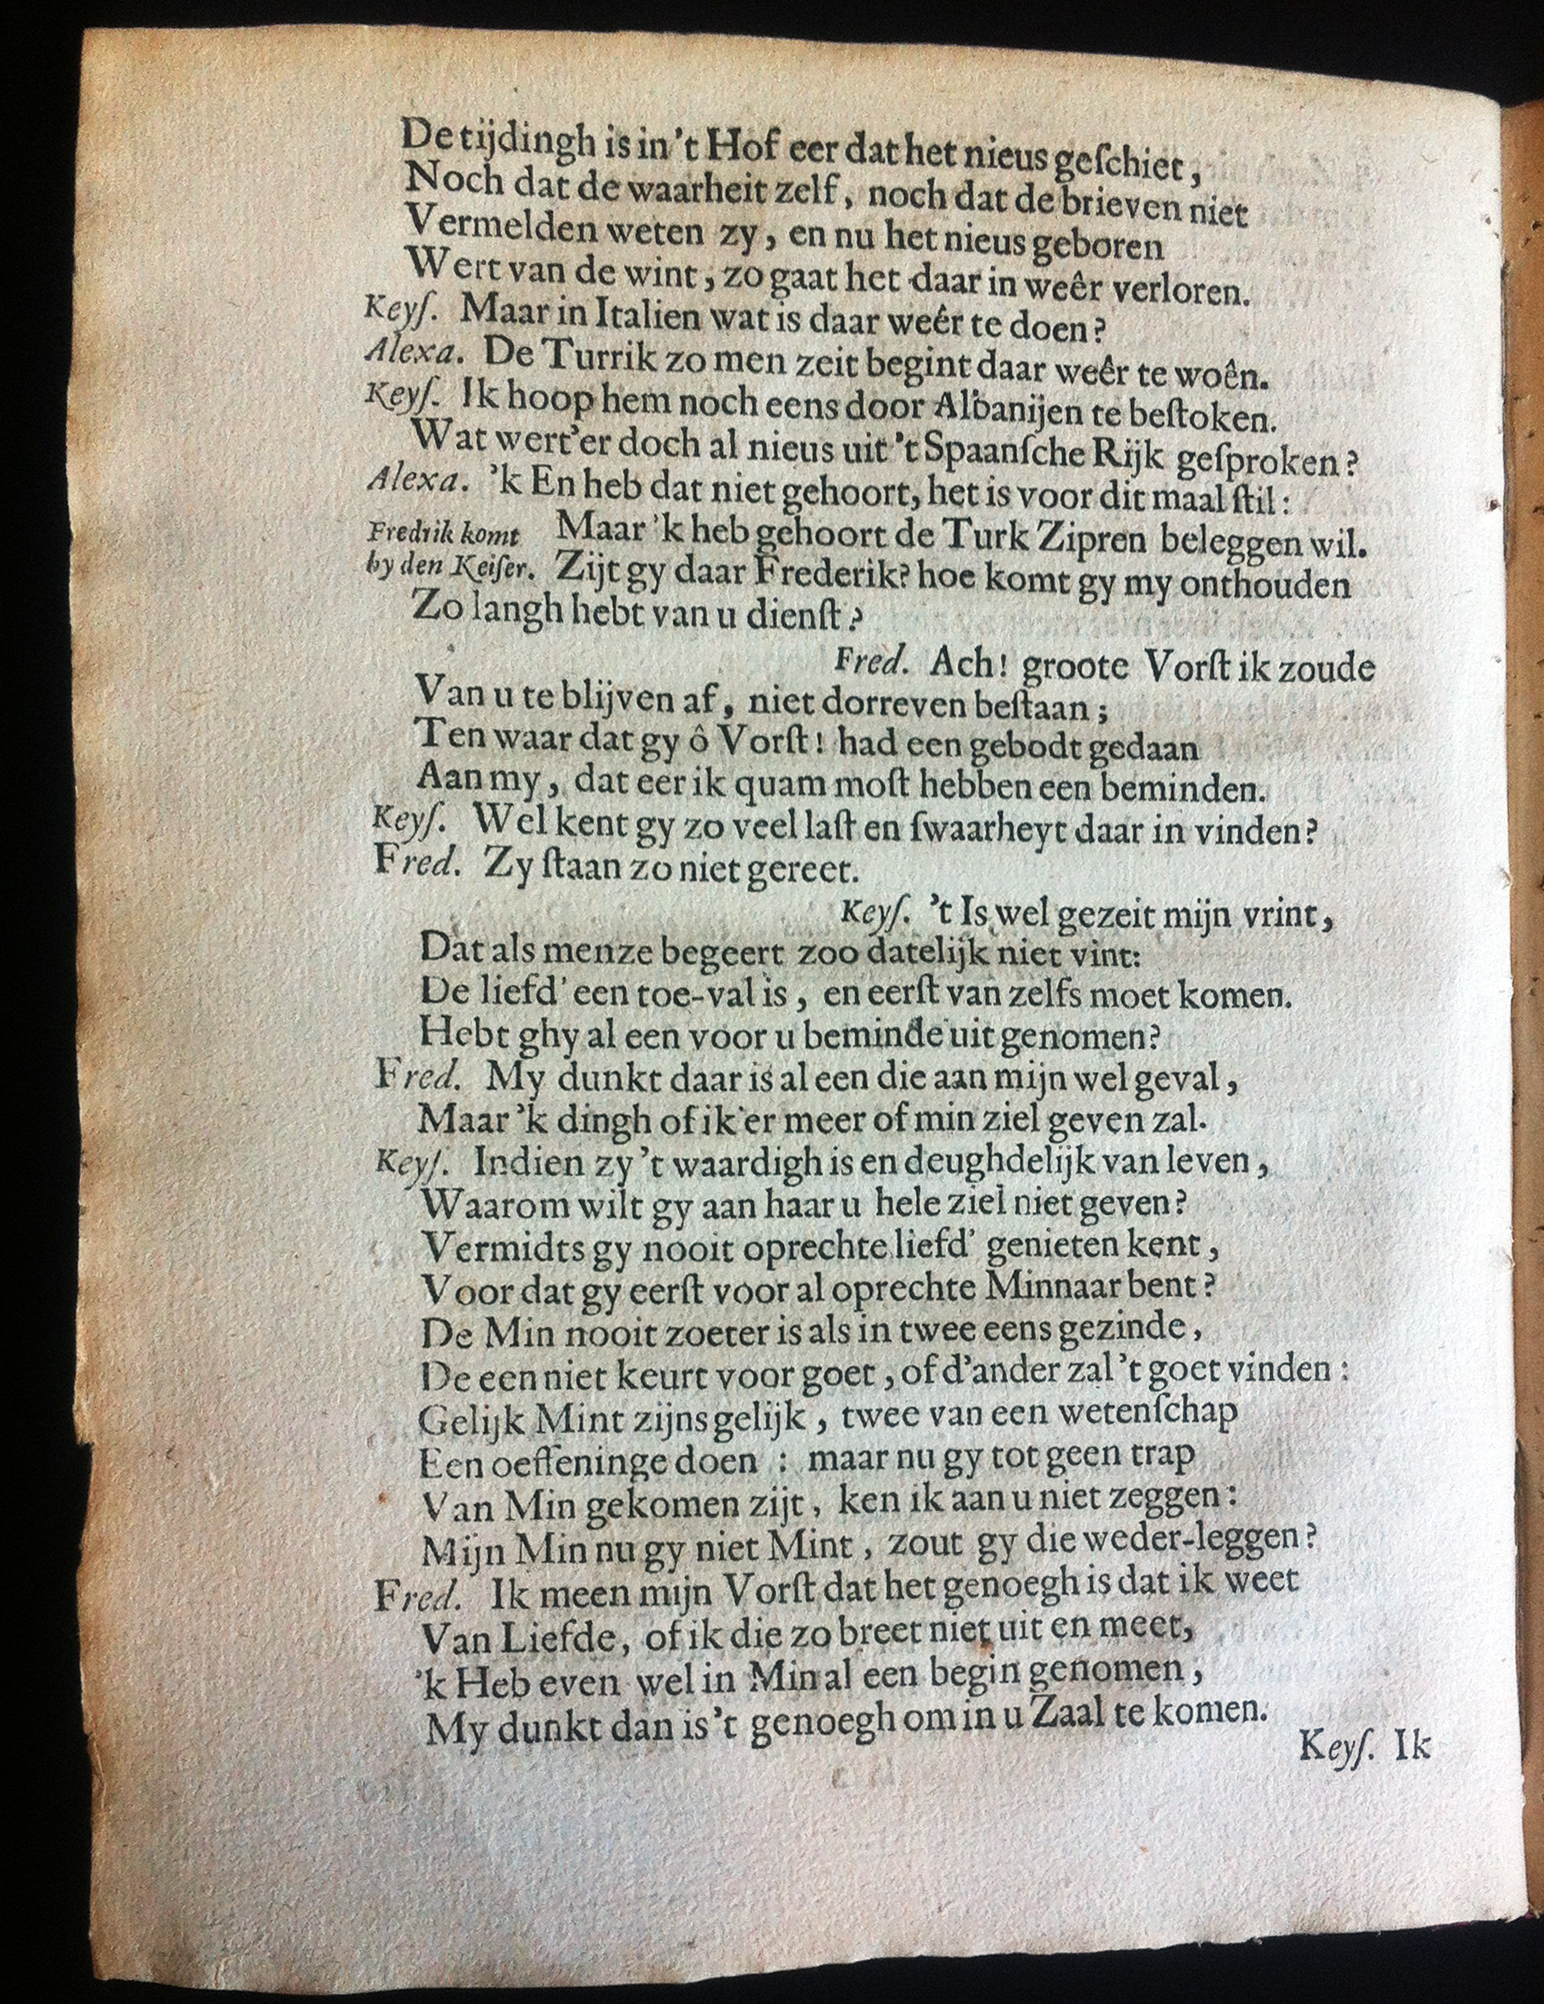 De tijdingh is in 't Hof eer dat het nieus geſchiet,
Noch dat de waarheit zelf, noch dat de brieven niet
Vermelden weten zy, en nu het nieus geboren
Wert van de wint, zo gaat het daar in weêr verloren.
Keyſ. Maar in Italien wat is daar weêr te doen?
Alexa. De Turrik zo men zeit begint daar weêr te woên.
Keyſ. Ik hoop hem noch eens door Albanijen te beſtoken.
Wat wert'er doch al nieus uit 't Spaanſche Rijk geſproken?
Alexa. 'k En heb dat niet gehoort, het is voor dit maal ſtil:
Fredrik komt Maar 'k heb gehoort de Turk Zipren beleggen wil.
by den Keiſer. Zijt gy daar Frederik? hoe komt gy my onthouden
Zo langh hebt van u dienſt?
Fred. Ach! groote Vorſt ik zoude
Van u te blijven af, niet dorreven beſtaan;
Ten waar dat gy ô Vorſt! had een gebodt gedaan
Aan my, dat eer ik quam moſt hebben een beminden.
Keyſ. Wel kent gy zo veel laſt en ſwaarheyt daar in vinden?
Fred. Zy ſtaan zo niet gereet.
Keyſ. 't Is wel gezeit mijn vrint,
Dat als menze begeert zoo datelijk niet vint:
De liefd' een toe-val is, en eerſt van zelfs moet komen.
Hebt ghy al een voor u beminde uit genomen?
Fred. My dunkt daar is al een die aan mijn wel geval,
Maar 'k dingh of ik'er meer of min ziel geven zal.
Keyſ. Indien zy 't waardigh is en deughdelijk van leven,
Waarom wilt gy aan haar u hele ziel niet geven?
Vermidts gy nooit oprechte liefd' genieten kent,
Voor dat gy eerſt voor al oprechte Minnaar bent?
De Min nooit zoeter is als in twee eens gezinde,
De een niet keurt voor goet, of d'ander zal 't goet vinden:
Gelijk Mint zijns gelijk, twee van een wetenſchap
Een oeffeninge doen: maar nu gy tot geen trap
Van Min gekomen zijt, ken ik aan u niet zeggen:
Mijn Min nu gy niet Mint, zout gy die weder-leggen?
Fred. Ik meen mijn Vorſt dat het genoegh is dat ik weet
Van Liefde, of ik die zo breet niet uit en meet,
'k Heb even wel in Min al een begin genomen,
My dunkt dan is 't genoegh om in u Zaal te komen.
Keyſ. Ik